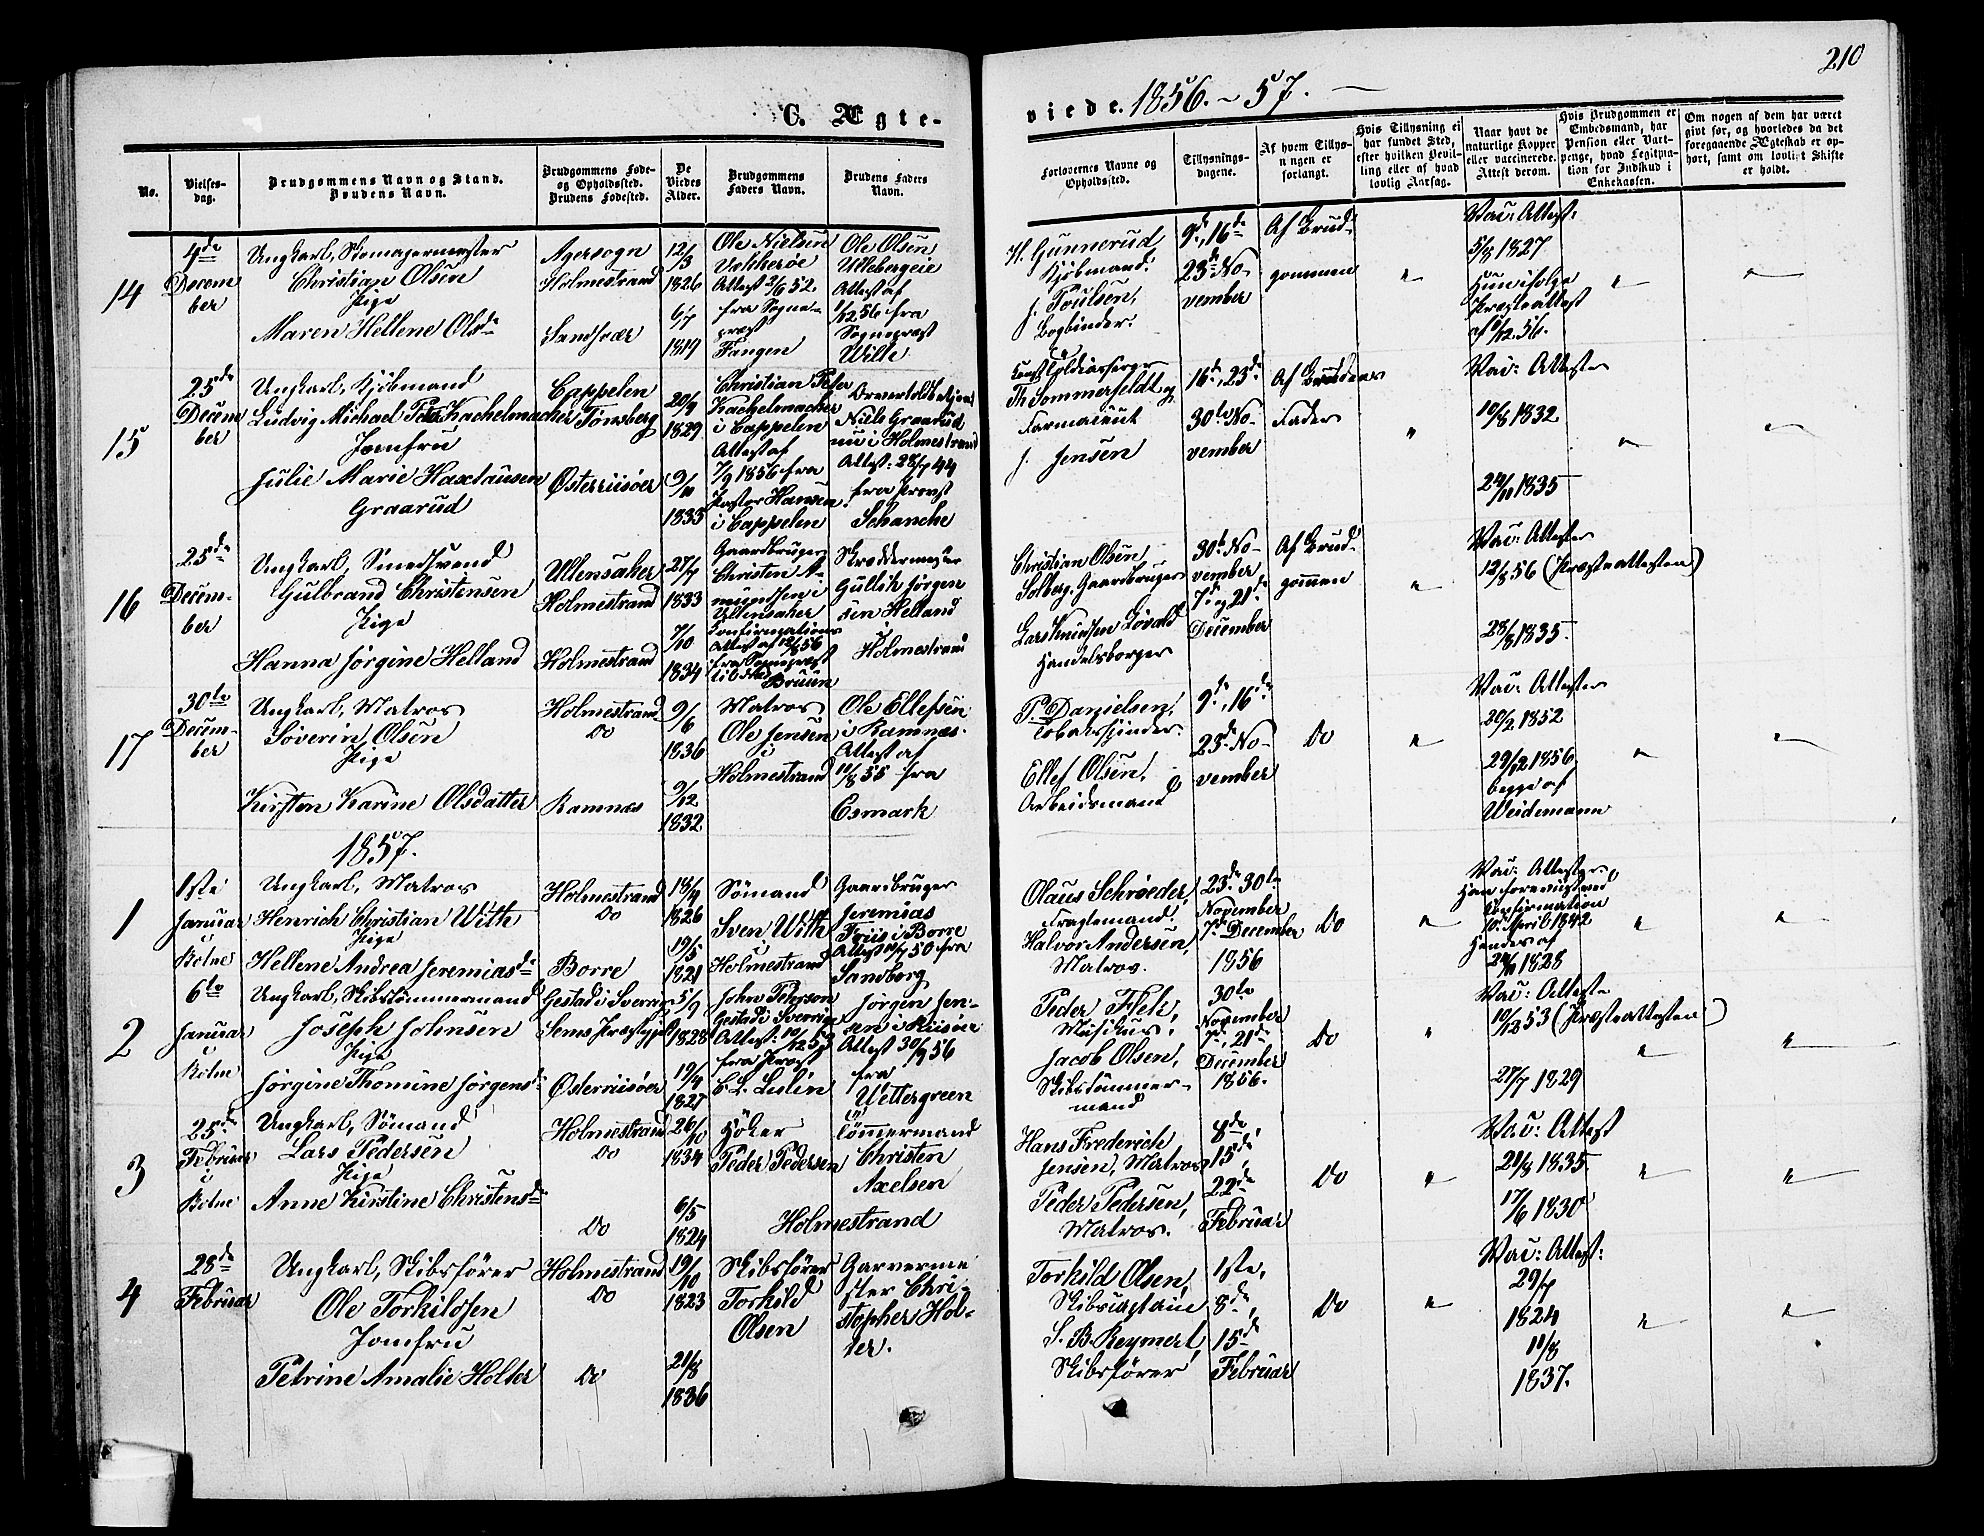 210
C. Ægte-
viede. 1856. ~ 57. —
No.
Vielses-
dag.
Brudgommens Navn og Stand.
Brudens Navn.
Brudgommens Føde-
og Opholdssted.
Brudens Fødested.
De
Viedes
Alder.
Brudgommens
Faders Navn.
Brudens Faders
Navn.
Forlovernes Navne og
Opholdssted.
Tillysnings-
dagene.
Af hvem Tillys-
ningen er
forlangt.
Hvis Tillysning ei
har fundet Sted,
efter hvilken Bevil-
ling eller af hvad
lovlig Aarsag.
Naar havt de
naturlige Kopper
eller vaccinerede.
Attest derom.
Hvis Brudgommen er
Embedsmand, har
Pension eller Vart-
penge, hvad Legitima-
tion for Indskud i
Enkekassen.
Om nogen af dem har været
gift før, og hvorledes da det
foregaaende Ægteskab er op-
hørt, samt om lovligt Skifte
er holdt.
14
4de
Decem
ber
Ungkarl, Skomagermester
Christian Olsen
Pige
Maren Hellene Olsdr
Agersogn
Holmestrand
Sandsvær
12/3
1826
6/7
1819
Ole Nielsen
Vekkerøe
Attest 3/6 52.
fra Sogne-
præst
Fangen
Ole Olsen
Ullebergeie
Attest af
1/12 56 fra
Sognepræst
Wille
H. Gunnerud,
Kjöbmand.
J. Poulsen,
Bogbinder.
9de, 16de
23de No-
vember
Af Brud-
gommen
"
Vac: Attest:
5/8 1827
Hun ifølge
Præsteattest
"
"
15
25de
Decem
ber
Ungkarl, Kjöbmand
Ludvig Michael Peter Kachelmacher
Jomfru
Julie Marie Haxthausen
Graarud
Cappelen
Tönsberg
Østerriisøer
20/9
1829
9/11
1833
Christian Peter
Kachelmacher
i Cappelen
Attest af
7/9 1856 fra
Pastor Hansen
i Cappelen
Overtoldbetjent
Niels Graarud
nu i Holmestrand
Attest: 28/7 44
fra Provst
Schanche
Th. Sommerfeldt og
Farmaceut
J. Jensen
16de, 23de
30te No-
vember
Af Brudens
Fader
"
Vac: Attester
10/8 1832
24/11 1835
"
"
16
25de
Decem-
ber
Ungkarl, Smedsvend
Gulbrand Christensen
Pige
Hanna Jørgine Helland
Ullensaker
Holmestrand
Holmestrand
27/7
1833
7/10
1834
Gaardbruger
Christen A-
mundsen i
Ullensaker
Confirmations
Attest af 12/8 56
fra Sognepræst
Bruun
Skreddermester
Gullik Jørgen
sen Helland
i
Holmestrand
Christian Olsen
Solberg, Gaardbruger
Lars Knudsen Lövald
Handelsborger
30te No-
vember
7de og 21de
December
Af Brud-
gommen
"
Vac: Attester
12/8 56 (Præsteattesten)
28/8 1835.
17
30te
Decem-
ber
Ungkarl, Matros
Severin Olsen
Pige
Kirsten Karine Olsdatter
Holmestrand
Do
Ramnæs
9/6
1836
9/12
1832
Matros
Ole Jensen
i
Holmestrand
Ole Ellefsen
i Ramnæs.
Attest af
11/8 55 fra
Esmark
P. Danielsen,
Tobaksspinder.
Ellef Olsen,
Arbeidsmand
9de, 16de
23de No-
vember
Do
"
Vac: Attester
20/2 1852
29/12 1856
begge af
Weidemann
"
"
1857.
1
1ste
Januar
i
Botne
Ungkarl, Matros
Henrich Christian With
Pige
Hellene Andrea Jeremiasdr
Holmestrand
Do
Borre
18/4
1826
19/5
1821
Sömand
Sven With
i
Holmestrand
Gaardbruger
Jeremias
Friis i Borre
Sandberg
Olaus Schrøeder,
Fragtemand.
Halvor Andersen,
Matros.
23de 30te
November
7de December
1856
Do
"
Vac: Attester
Confirmation
10de April 1842
Hendes af
1828
"
"
2
6te
Januar
i
Botne
Ungkarl, Skibstömmermand
Joseph Johnsen
Pige
Jørgine Thomine Jørgensdr
Gestad i Sverrig
Sems Præstegjeld
Østerriisøer
5/9
1828
19/4
1827
John Peterson
Gestad i Sverrig
Attest: 10/12 53
fra Provst
C. L. Lidén
Jørgen Jen-
sen i Riisøer
Attest 30/9 56
fra
Wettergreen
Peder Flek,
Musikus.
Jacob Olsen,
Skibstömmer-
mand
30te
November
7de, 21de
December
1856.
Do
"
Vac: Attester
10/12 53 (Præsteattesten)
27/7 1829
"
"
3
25de
Februar
i
Botne
Ungkarl, Sömand
Lars Pedersen
Pige
Anne Kirstine Christensdr
Holmestrand
Do
Do
26/10
1834
6/5
1824
Höker
Peder Pedersen
Tömmermand
Christen
Axelsen
Holmestrand
Hans Frederich
Jensen, Matros
Peder Pedersen,
Matros.
8de,
15de,
22de
Februar
Do
"
Vac: Attest
21/8 1835
17/6 1830
"
"
4
28de
Februar
Ungkarl, Skibsfører
Ole Torkildsen
Jomfru
Petrine Amalie Holter
Holmestrand
Do
Do
19/10
1823
21/8
1836
Skibsfører
Torkild
Olsen
Garverme
ster Chri-
stopher Hol-
ter.
Torkild Olsen,
Skibscaptain
S. B. Reymert,
Skibsfører
1ste,
8de,
15de
Februar
Do
"
Vac: Attest:
29/7
1824
11/8
1837.
"
"